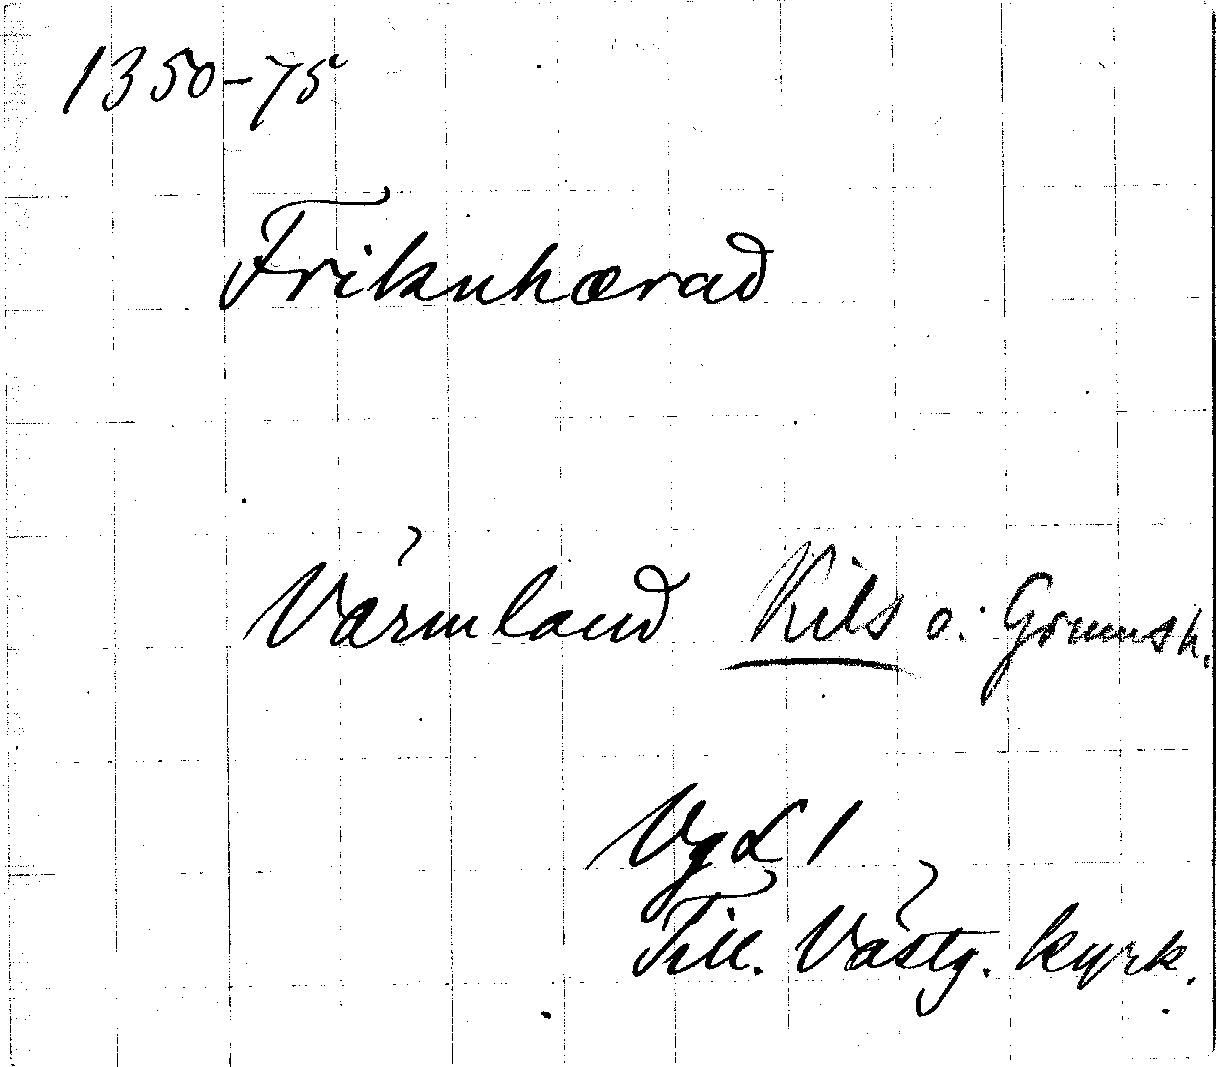 1350-75
Friknhærad
Värmland Kils o. Grumsh.
VgL 1
Till. Västg. kyrk.